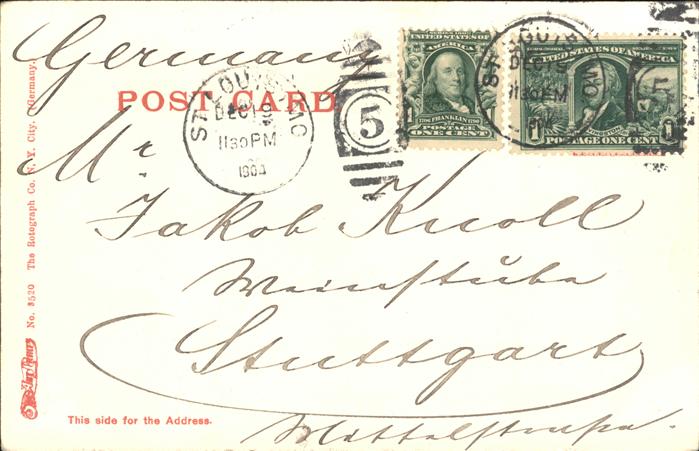 Germany
POST CARD
ST. LOUIS, MO
DEC 1
11 30 PM
1904
5
SERIES 1902
UNITED STATES OF AMERICA
1706 FRANKLIN 1790
POSTAGE
1 ONE CENT 1
ST. LOUIS, MO
11 30 PM
UNITED STATES OF AMERICA
1 POSTAGE ONE CENT 1
5
Mr.
Jakob Knoll
Weinstube
Stuttgart
Mittelstraße.
No. 3520 The Rotograph Co., N. Y. City. (Germany.)
This side for the Address.